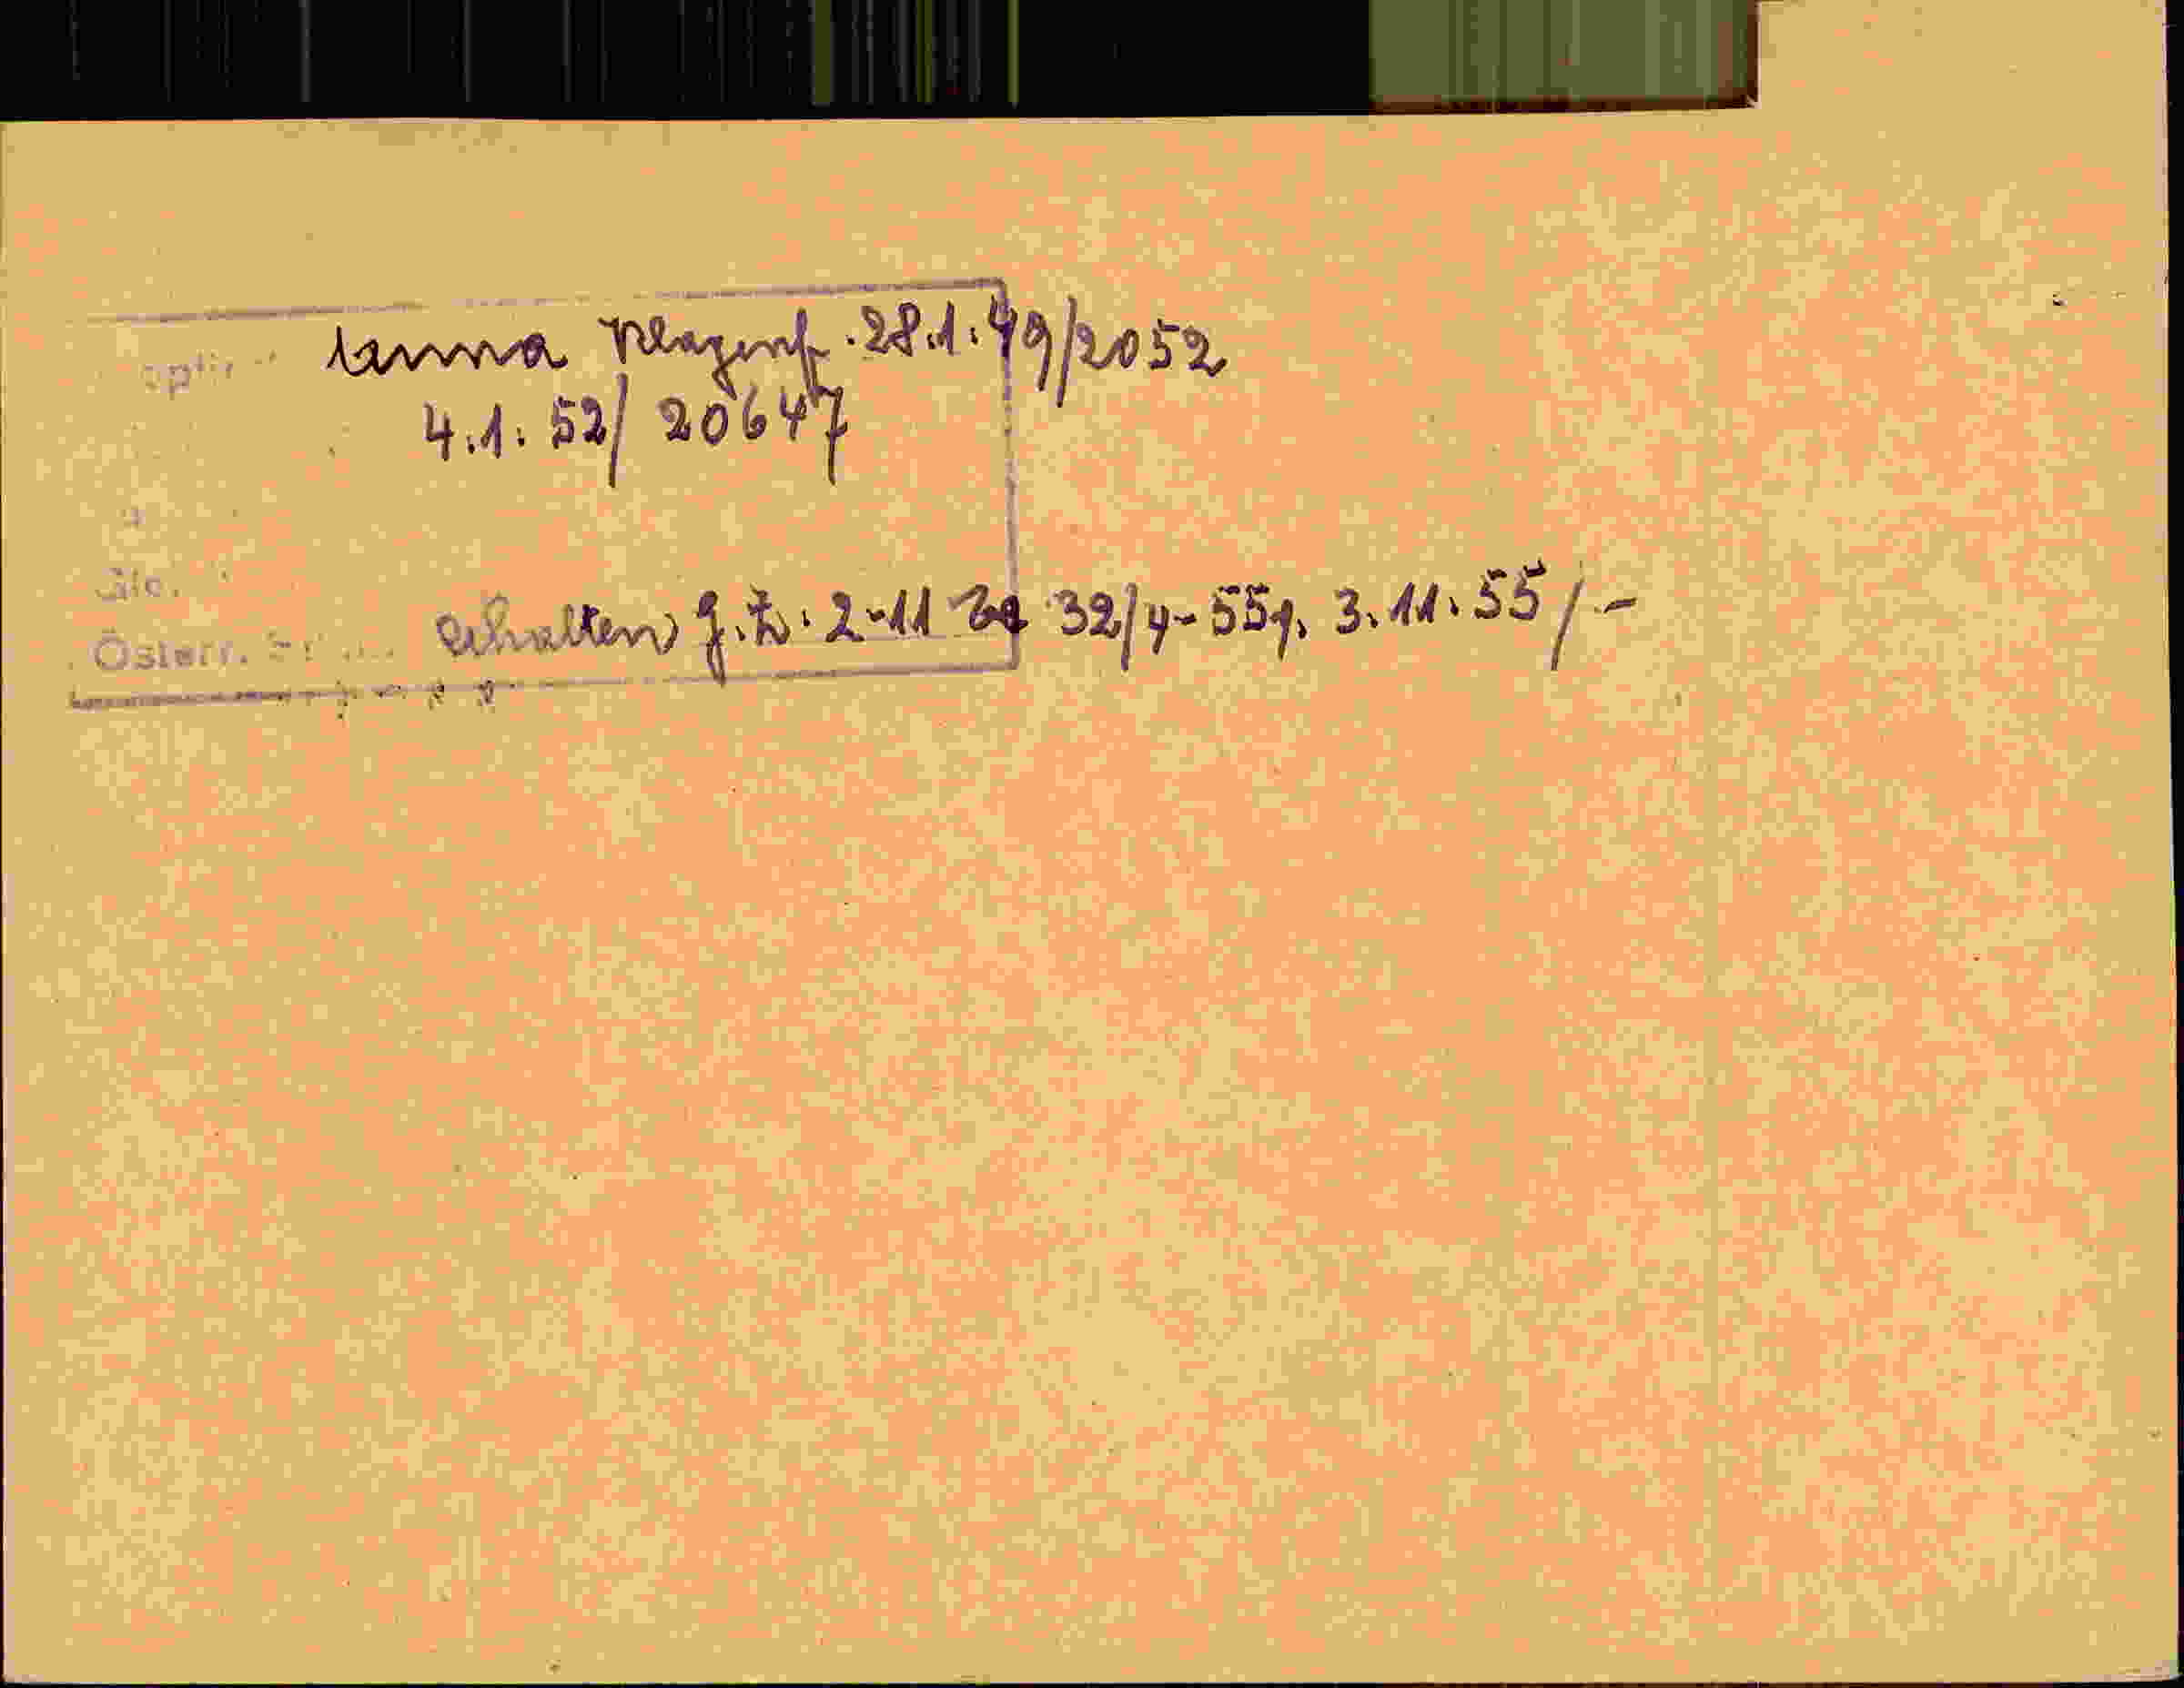 Klagenf. 28.1.49/2052
4.1.52/20647
Österr.
erhalten g. Z. 2-11 32/4-55 3.11.55/-